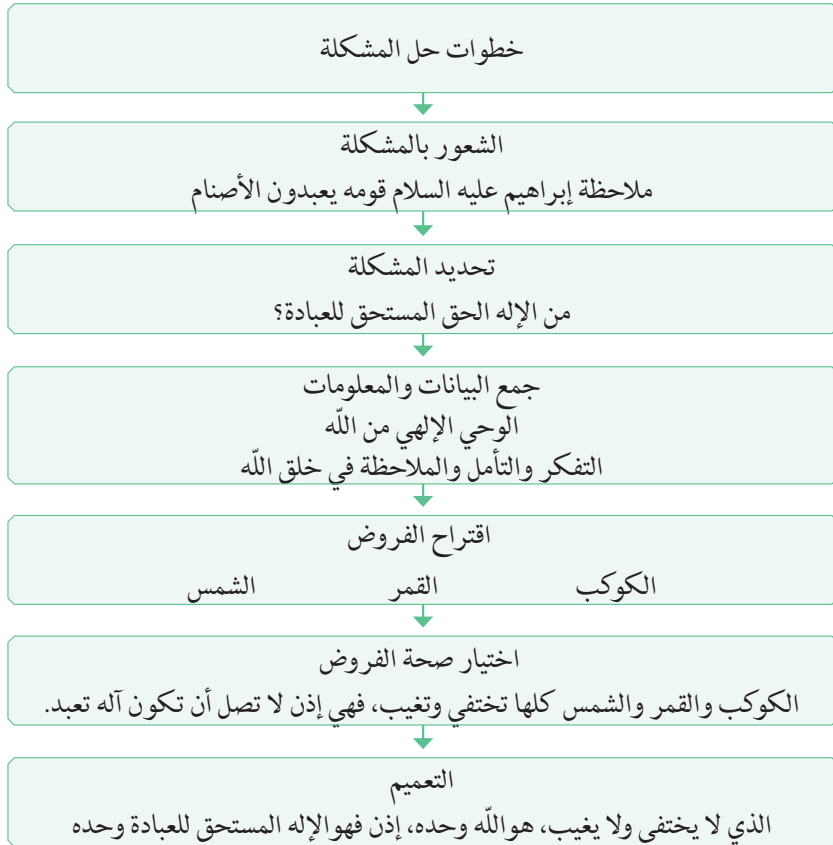 خطوات حل المشكلة
الشعور بالمشكلة
ملاحظة إبراهيم عليه السلام قومه يعبدون الأصنام
تحديد المشكلة
من الإله الحق المستحق للعبادة؟
جمع البيانات والمعلومات
الوحي الإلهي من اللّه
التفكر والتأمل والملاحظة في خلق اللّه
اقتراح الفروض
الكوكب القمر الشمس
اختيار صحة الفروض
الكوكب والقمر والشمس كلها تختفي وتغيب، فهي إذن لا تصل أن تكون آله تعبد.
التعميم
الذي لا يختفي ولا يغيب، هواللّه وحده، إذن فهوالإله المستحق للعبادة وحده